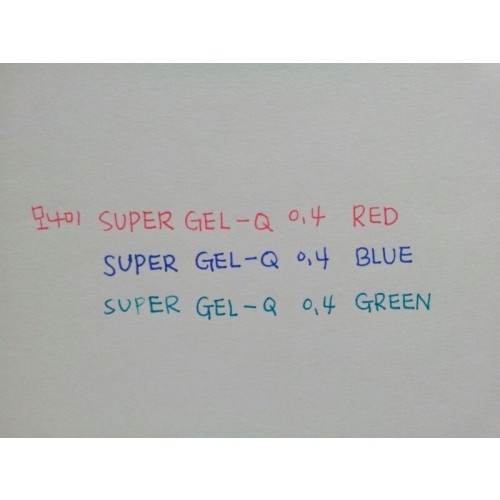 모나미 SUPER GEL-Q 0.4 RED
SUPER GEL-Q 0.4 BLUE
SUPER GEL-Q 0.4 GREEN